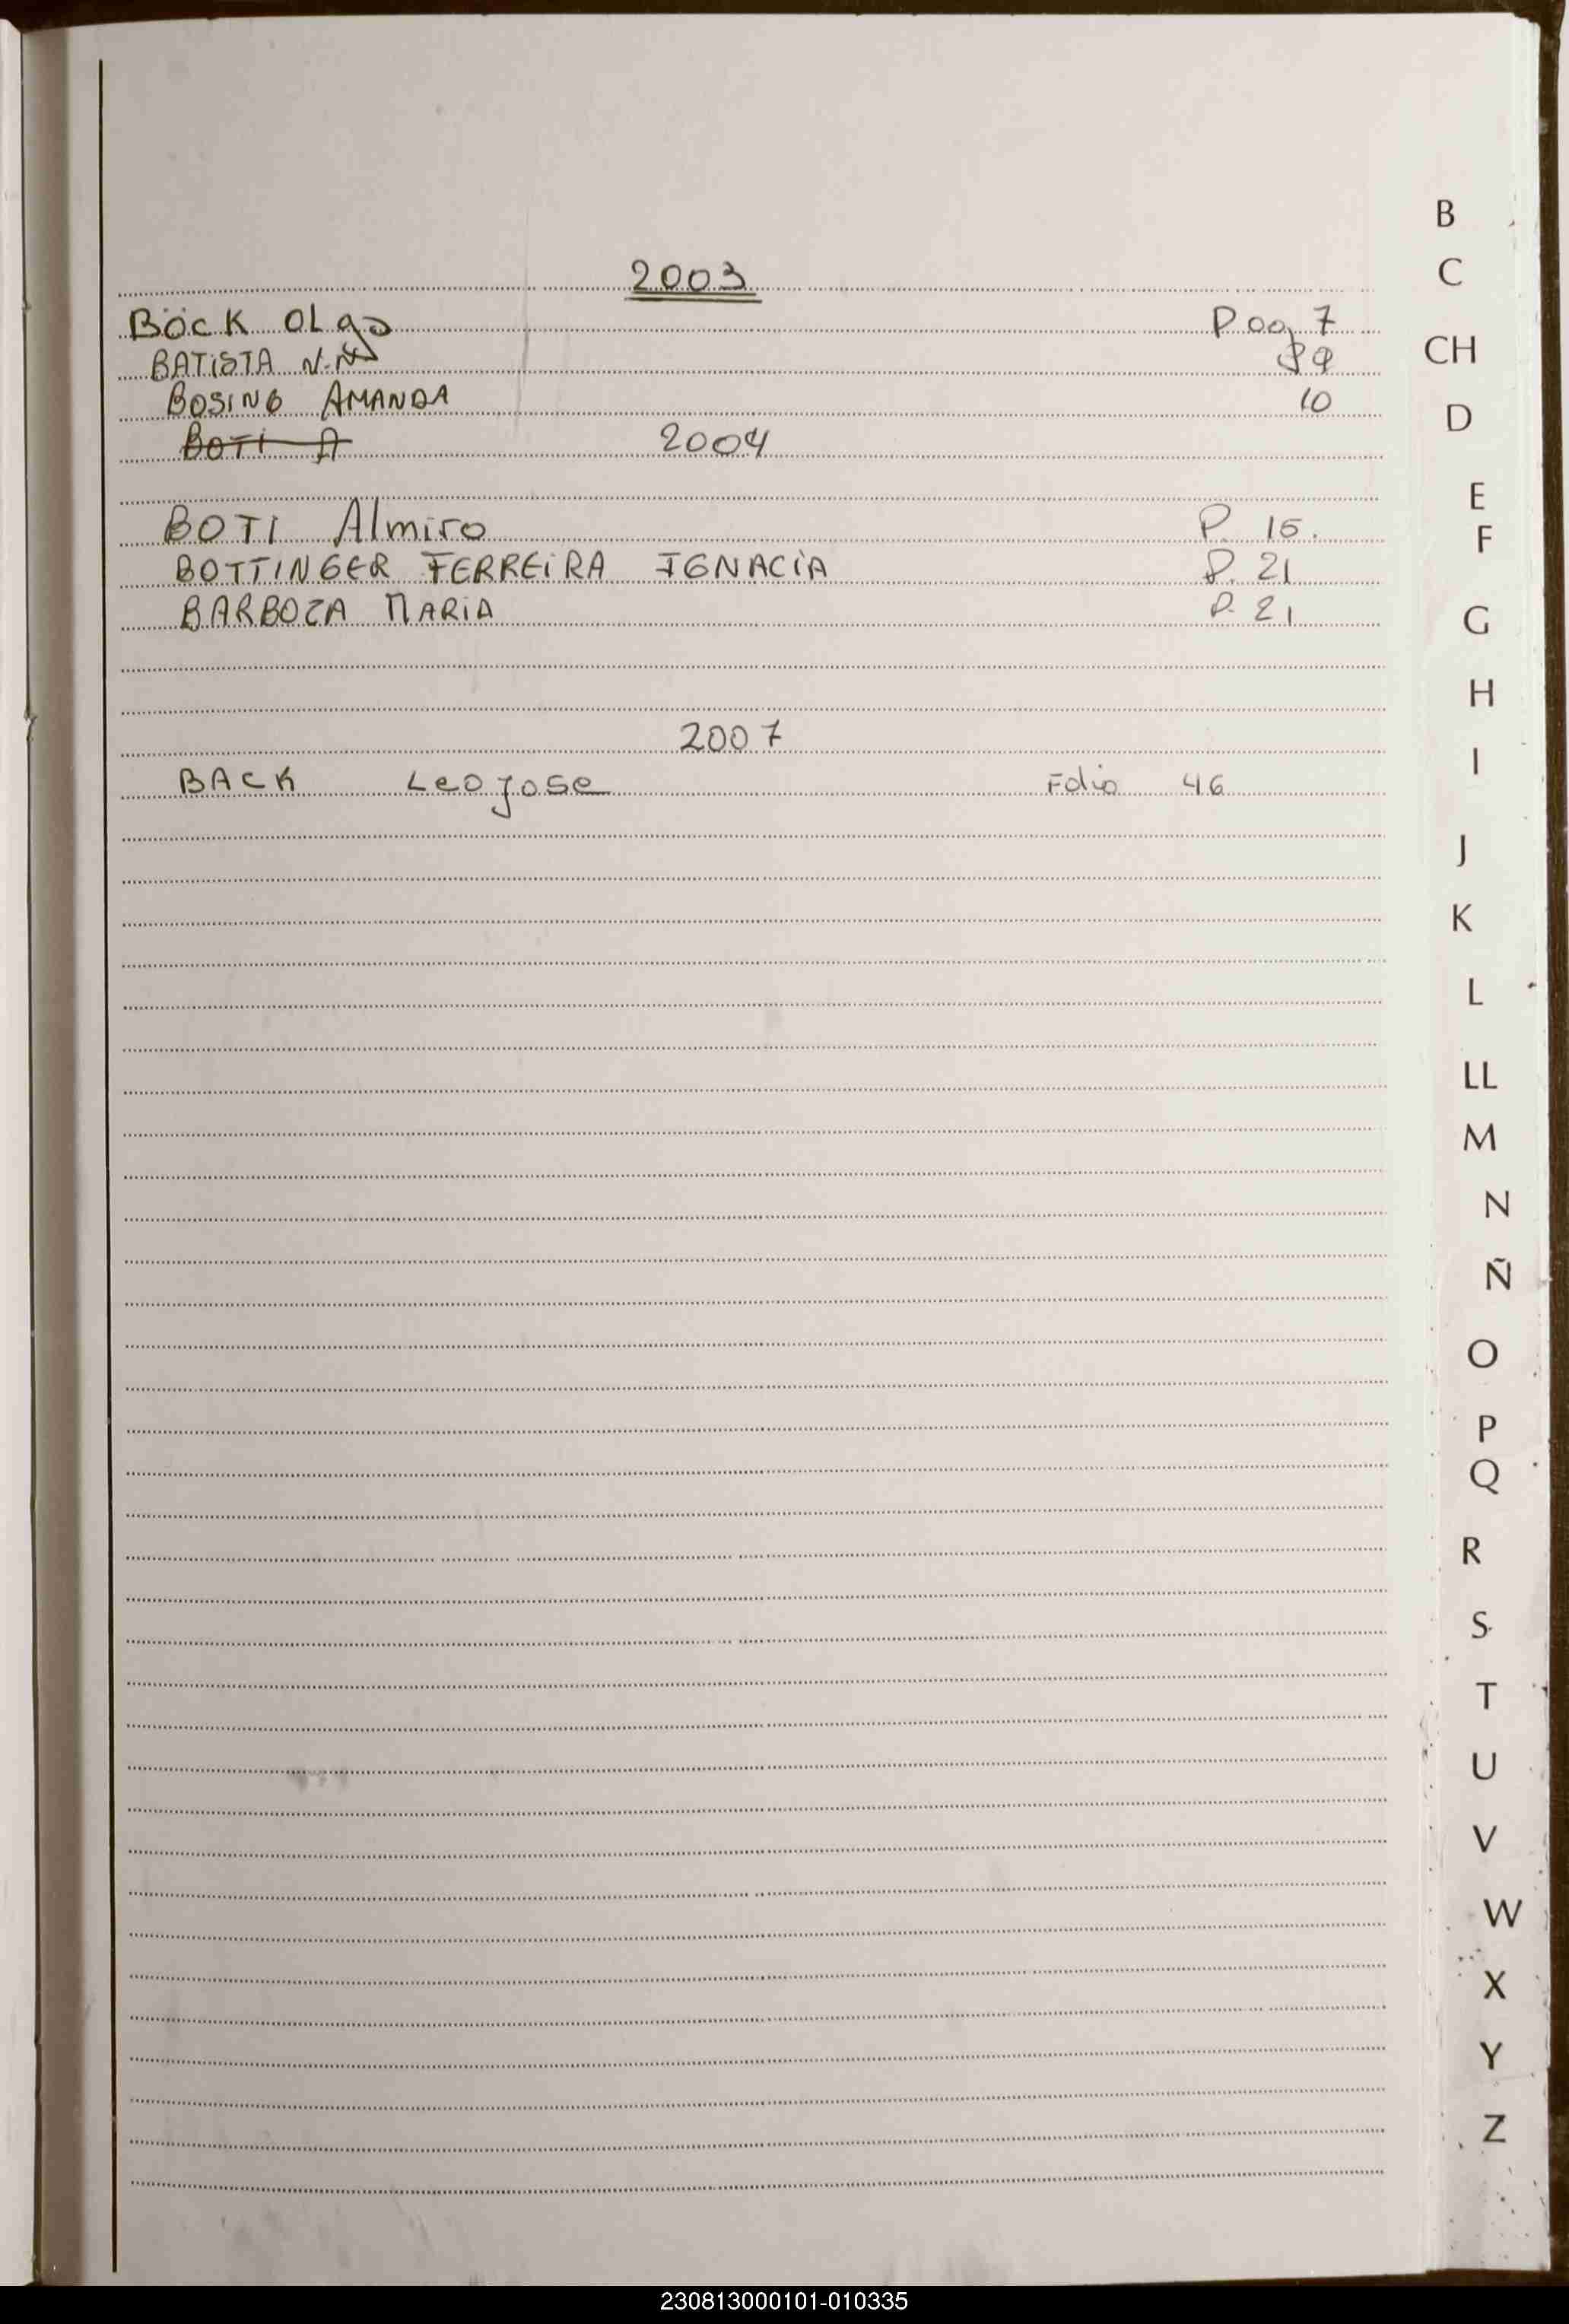 2003
BÖCK OLga Pag 7
BATISTA N.N 9
BOSING AMANDA 10
BOTI A 2004
BOTI Almiro P. 15.
BOTTINGER FERREIRA IGNACIA P. 21
BARBOZA MARIA P. 21
2007
BACK Leo jose Folio 46
B
C
CH
D
E
F
G
H
I
J
K
L
LL
M
N
Ñ
O
P
Q
R
S
T
U
V
W
X
Y
Z
230813000101-010335